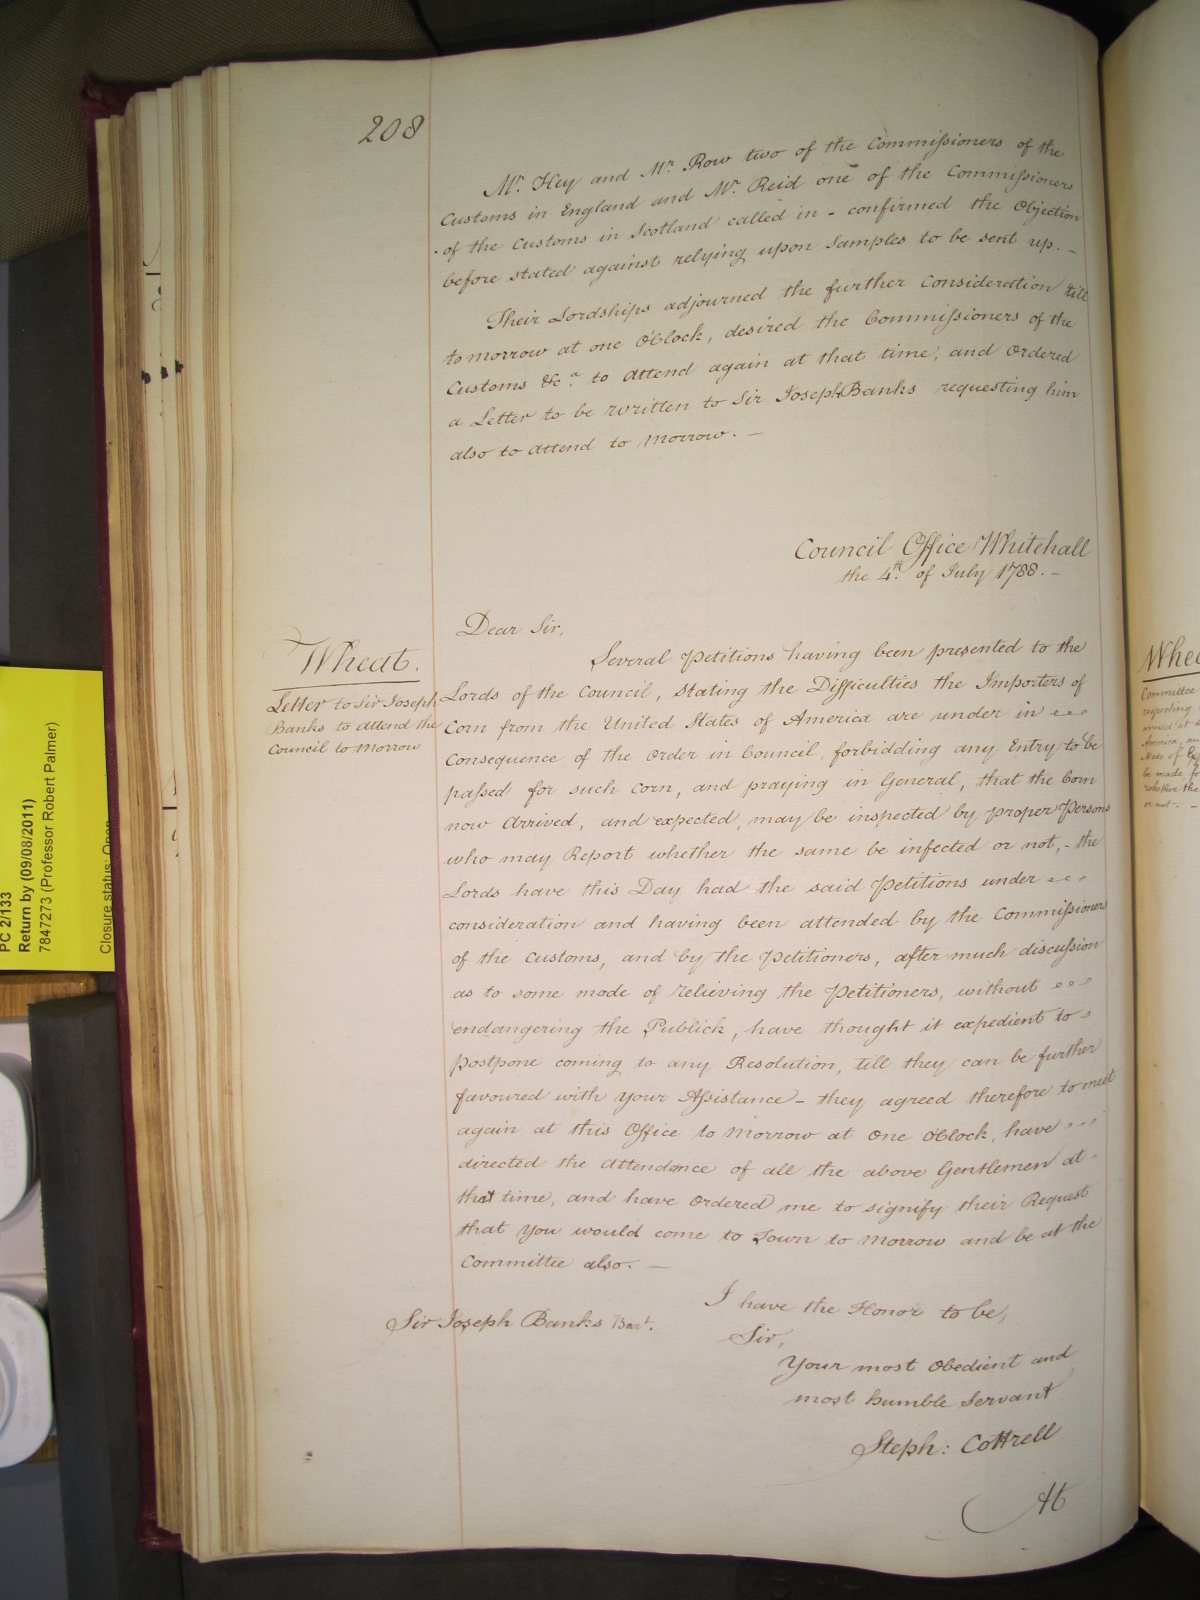 208
Mr. Hey and Mr. Row two of the Commissioners of the
Customs in England and Mr. Reid one of the Commissioners
of the Customs in Scotland called in - confirmed the Objection
before stated against relying upon Samples to be sent up. -
Their Lordships adjourned the further Consideration till
to morrow at one O'Clock, desired the Commissioners of the
Customs &c.a to attend again at that time; and Ordered
a Letter to be written to Sir Joseph Banks requesting him
also to attend to Morrow. -
Council Office Whitehall
the 4th. of July 1788. -
Dear Sir,
Wheat.
Letter to Sir Joseph
Banks to attend the
Council to Morrow
Several Petitions having been presented to the
Lords of the Council, stating the Difficulties the Importers of
Corn from the United States of America are under in
Consequence of the Order in Council, forbidding any Entry to be
passed for such Corn, and praying in General, that the Corn
now Arrived, and expected, may be inspected by proper Persons
who may Report whether the same be infected or not, - the
Lords have this Day had the said Petitions under
consideration and having been attended by the Commissioners
of the Customs, and by the Petitioners, after much discussion
as to some mode of relieving the Petitioners, without
endangering the Publick, have thought it expedient to
postpone coming to any Resolution, till they can be further
favoured with your Assistance - they agreed therefore to meet
again at this Office to Morrow at One O'Clock, have
directed the Attendance of all the above Gentlemen at
that time, and have Ordered me to signify their Request
that You would come to Town to Morrow and be at the
Committee also. -
I have the Honor to be,
Sir Joseph Banks Bart.
Sir,
Your most Obedient and
most humble Servant
Steph: Cottrell
At
PC 2/133
Return by (09/08/2011)
7847273 (Professor Robert Palmer)
Closure status: Open
Committee
respecting
America, an
Mode of
be made fo
whether the
or not. -